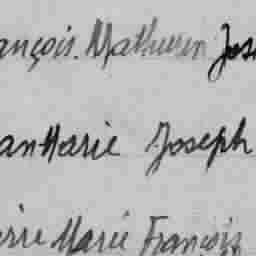 ançois. Mathurin Jose
an Marie Joseph
erre Marie François